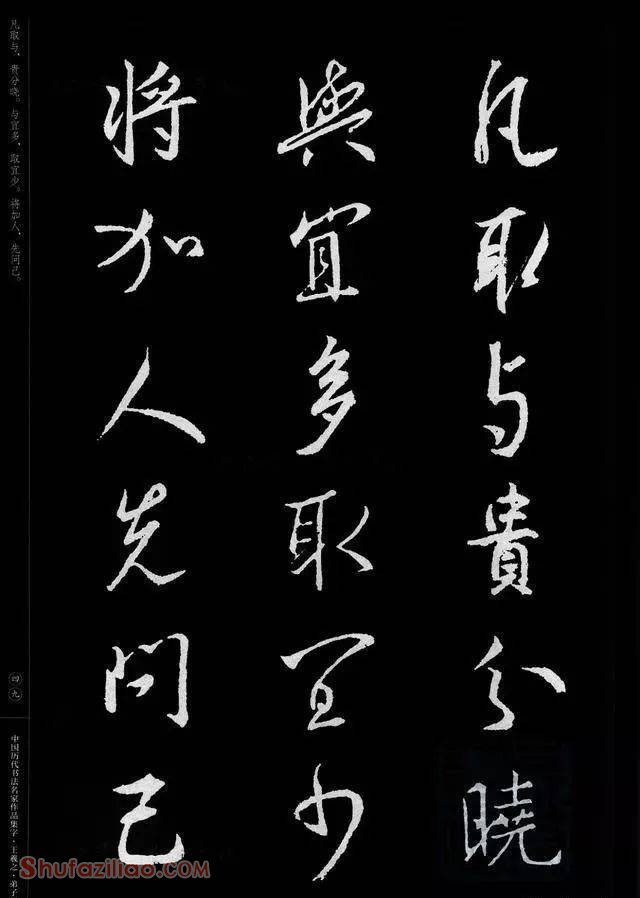 凡取与貴分曉
與宜多取宜少
將加人先問己
凡取与，贵分晓。与宜多，取宜少。将加人，先问己。
四九
中国历代书法名家作品集字·王羲之·弟子
Shufaziliao.com